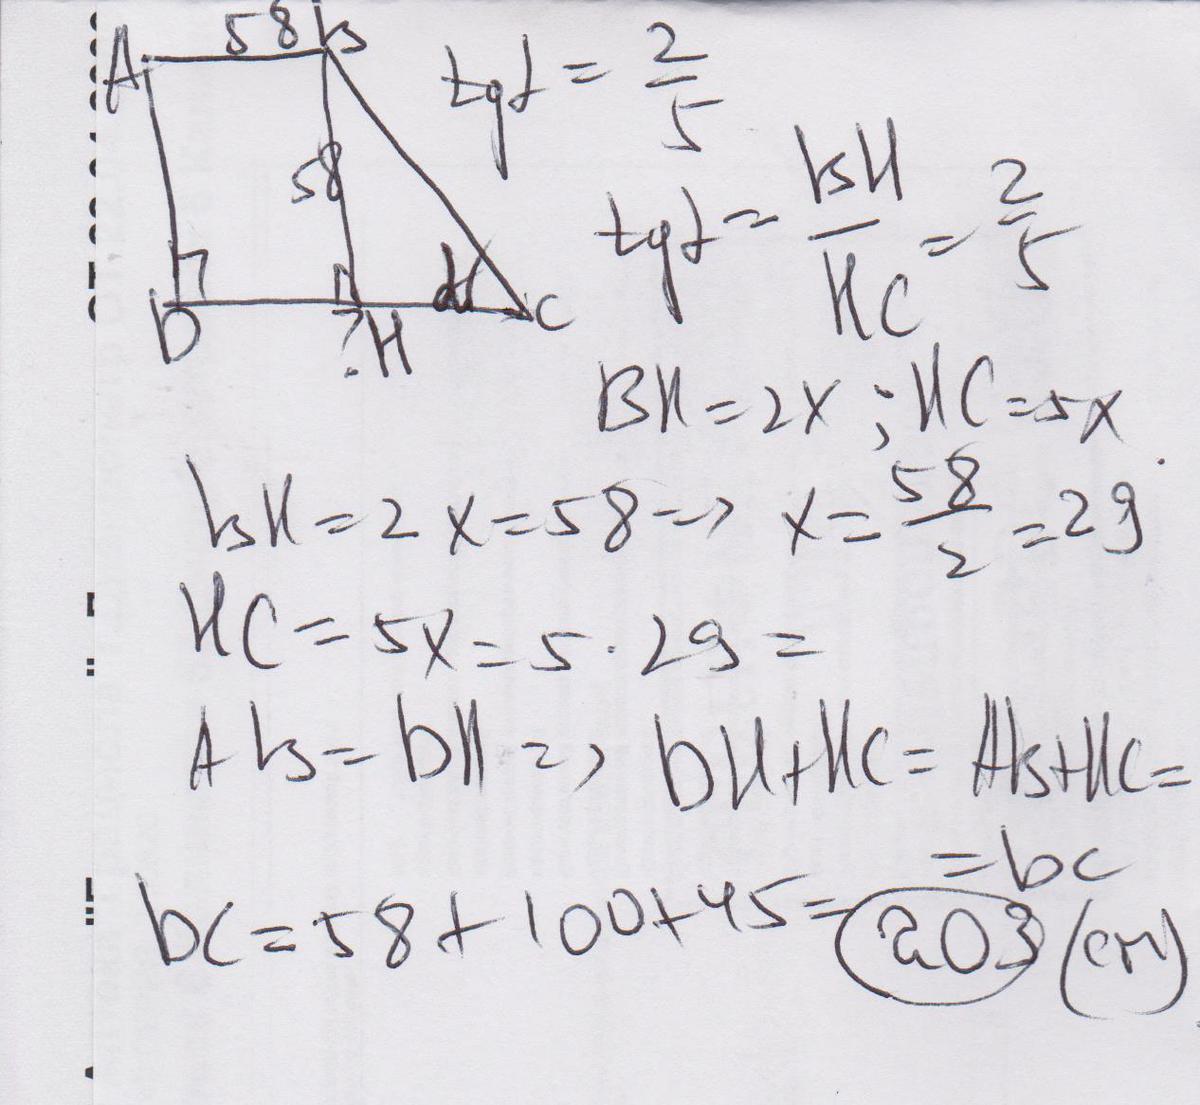 A 58 B
tgα = 2/5
58
tgα = BH/HC = 2/5
α
D ?H C
BH = 2x ; HC = 5x
BH = 2x = 58 => x = 58/2 = 29
HC = 5x = 5 · 29 =
AB = DH => DH + HC = AB + HC =
= DC
DC = 58 + 100 + 45 = 203 (см)